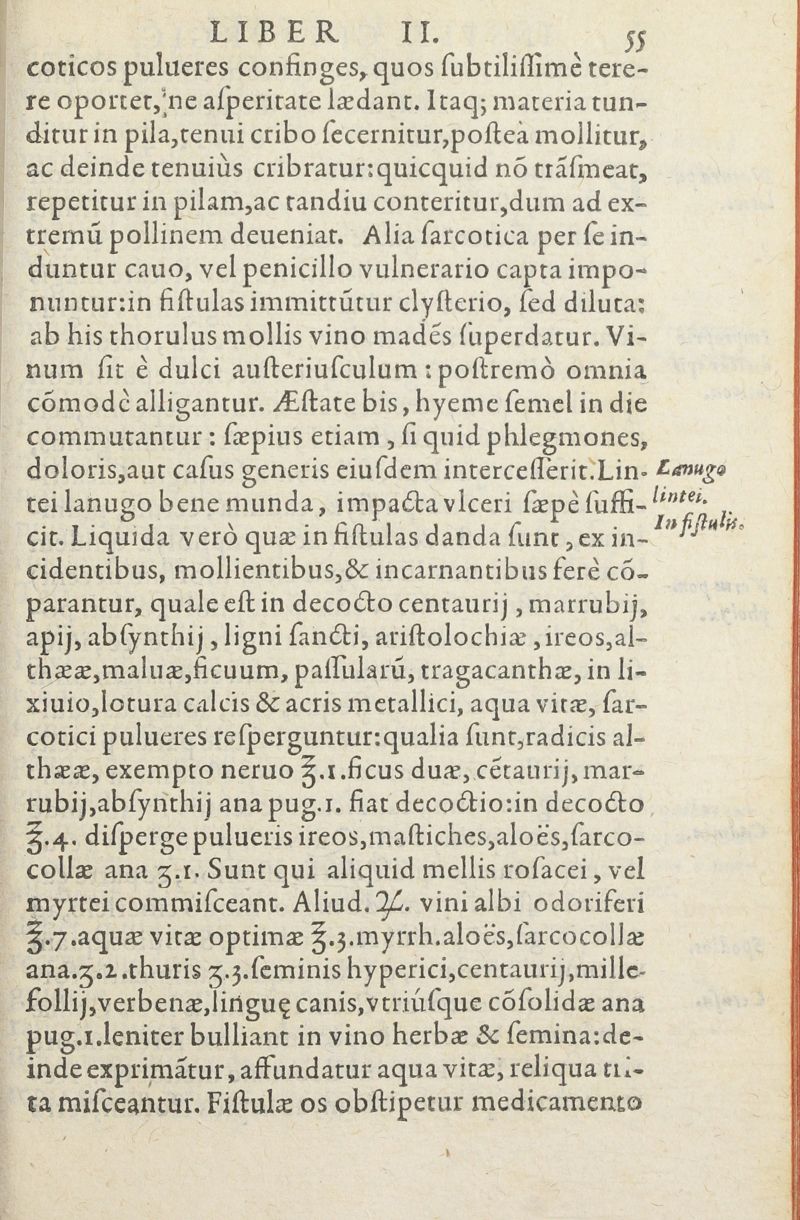 LIBER II. 55
coticos pulueres confinges, quos ſubtiliſſimè tere-
re oportet, ne aſperitate lædant. Itaq; materia tun-
ditur in pila,tenui cribo ſecernitur,poſteà mollitur,
ac deinde tenuiùs cribratur:quicquid nõ trãſmeat,
repetitur in pilam,ac tandiu conteritur,dum ad ex-
tremũ pollinem deueniat. Alia ſarcotica per ſe in-
duntur cauo, vel penicillo vulnerario capta impo-
nuntur:in fiſtulas immittũtur clyſterio, ſed diluta:
ab his thorulus mollis vino madẽs ſuperdatur. Vi-
num ſit è dulci auſteriuſculum : poſtremò omnia
cõmodè alligantur. Æſtate bis, hyeme ſemel in die
commutantur : ſæpius etiam , ſi quid phlegmones,
doloris,aut caſus generis eiuſdem interceſſerit.Lin-
tei lanugo bene munda, impacta vlceri ſæpè ſuffi-
cit. Liquida verò quæ in fiſtulas danda ſunt , ex in-
cidentibus, mollientibus,& incarnantibus ferè cõ-
parantur, quale eſt in decocto centaurij , marrubij,
apij, abſynthij , ligni ſancti, ariſtolochiæ ,ireos,al-
thææ,maluæ,ficuum, paſſularũ, tragacanthæ, in li-
xiuio,lotura calcis & acris metallici, aqua vitæ, ſar-
cotici pulueres reſperguntur:qualia ſunt,radicis al-
thææ, exempto neruo ℥.1.ficus duæ, cẽtaurij, mar-
rubij,abſynthij ana pug.1. fiat decoctio:in decocto
℥.4. diſperge pulueris ireos,maſtiches,aloës,ſarco-
collæ ana ʒ.1. Sunt qui aliquid mellis roſacei , vel
myrtei commiſceant. Aliud. ℞. vini albi odoriferi
℥.7.aquæ vitæ optimæ ℥.3.myrrh.aloës,ſarcocollæ
ana.ʒ.2.thuris ʒ.3.ſeminis hyperici,centaurij,mille-
follij,verbenæ,linguę canis,vtriúſque cõſolidæ ana
pug.1.leniter bulliant in vino herbæ & ſemina:de-
inde exprimãtur, affundatur aqua vitæ, reliqua tri-
ta miſceantur. Fiſtulæ os obſtipetur medicamento
Lanugo
lintei.
In fiſtulis.